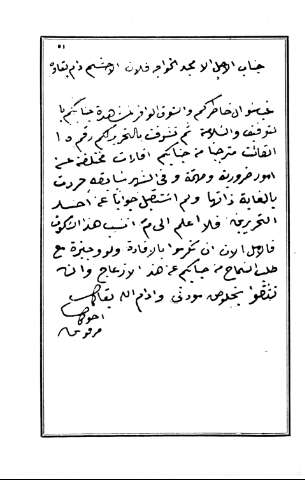 ٥١
جناب الاجل الامجد الخواجه فلان الافخم دام بقاؤه
غب سؤال خاطركم والشوق الوافر لمشاهدة جنابكم بال
توفيق والسلامة ثم نشوف بالتحريركم رقم ١٥
الفائت مترجيا من جنابكم افادات مختلفة عن
امور ضرورية ومهمة وفي الشهر سابقه حررت
بالغاية ذاتها ولم استحصل جوابا عن احد
التحريرين فلا اعلم الى مَ انسب هذا السكوت
فالامل الان ان تكرموا بالافادة ولو وجيزة مع
طلب السماح من جنابكم عن هذا الازعاج وان
تثقوا بخلوص مودتي وادام الله بقاكم
اخوكم
مرقوس